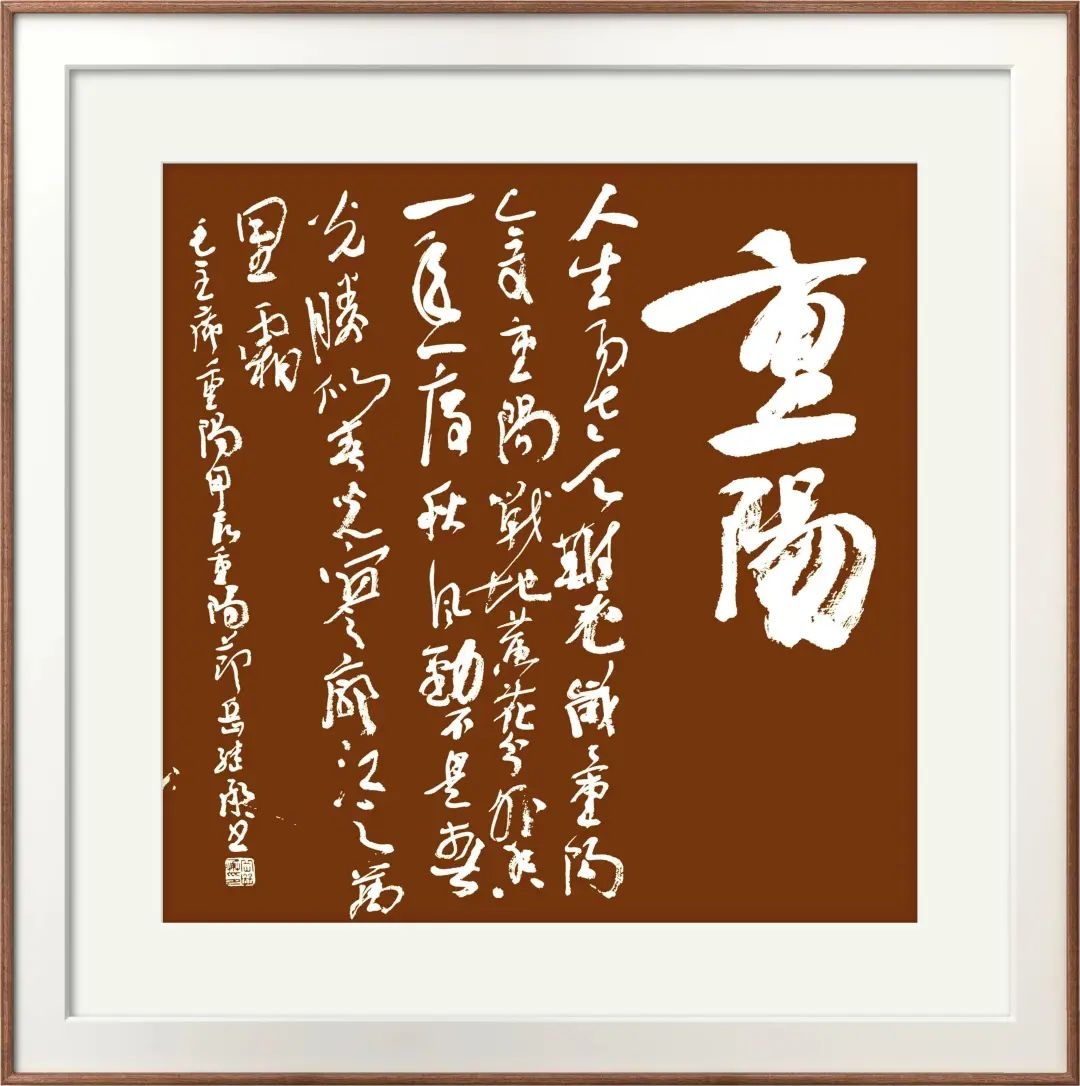 重陽
人生易老天難老歲々重陽
今又重陽戰地黄花分外香
一年一度秋風勁不是春
光勝似春光寥廓江天萬
里霜
毛主席重陽甲辰重陽節岳继书